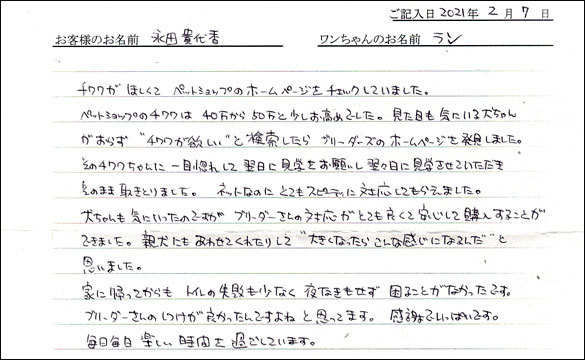 ご記入日 2021年 2月 7日
お客様のお名前 永田貴代香 ワンちゃんのお名前 ラン
チワワが ほしくて ペットショップのホームページをチェックしていました。
ペットショップのチワワは 40万から50万と少しお高めでした。見た目も気にいる犬ちゃん
がおらず "チワワが欲しい"と検索したら ブリーダーズのホームページを発見しました。
そのチワワちゃんに一目惚れして翌日に見学をお願いし翌々日に見学させていただき
そのまま引きとりました。 ネットなのに とてもスピーディに対応してもらえました。
犬ちゃんも気にいったのですが ブリーダーさんの対応がとても良くて安心して購入することが
できました。親犬にもあわせてくれたりして"大きくなったらこんな感じになるんだ"と
思いました。
家に帰ってからも トイレの失敗も少なく 夜なきもせず 困ることがなかったです。
ブリーダーさんのしつけが良かったんですよねと思ってます。 感謝でいっぱいです。
毎日毎日 楽しい時間を過ごしています。